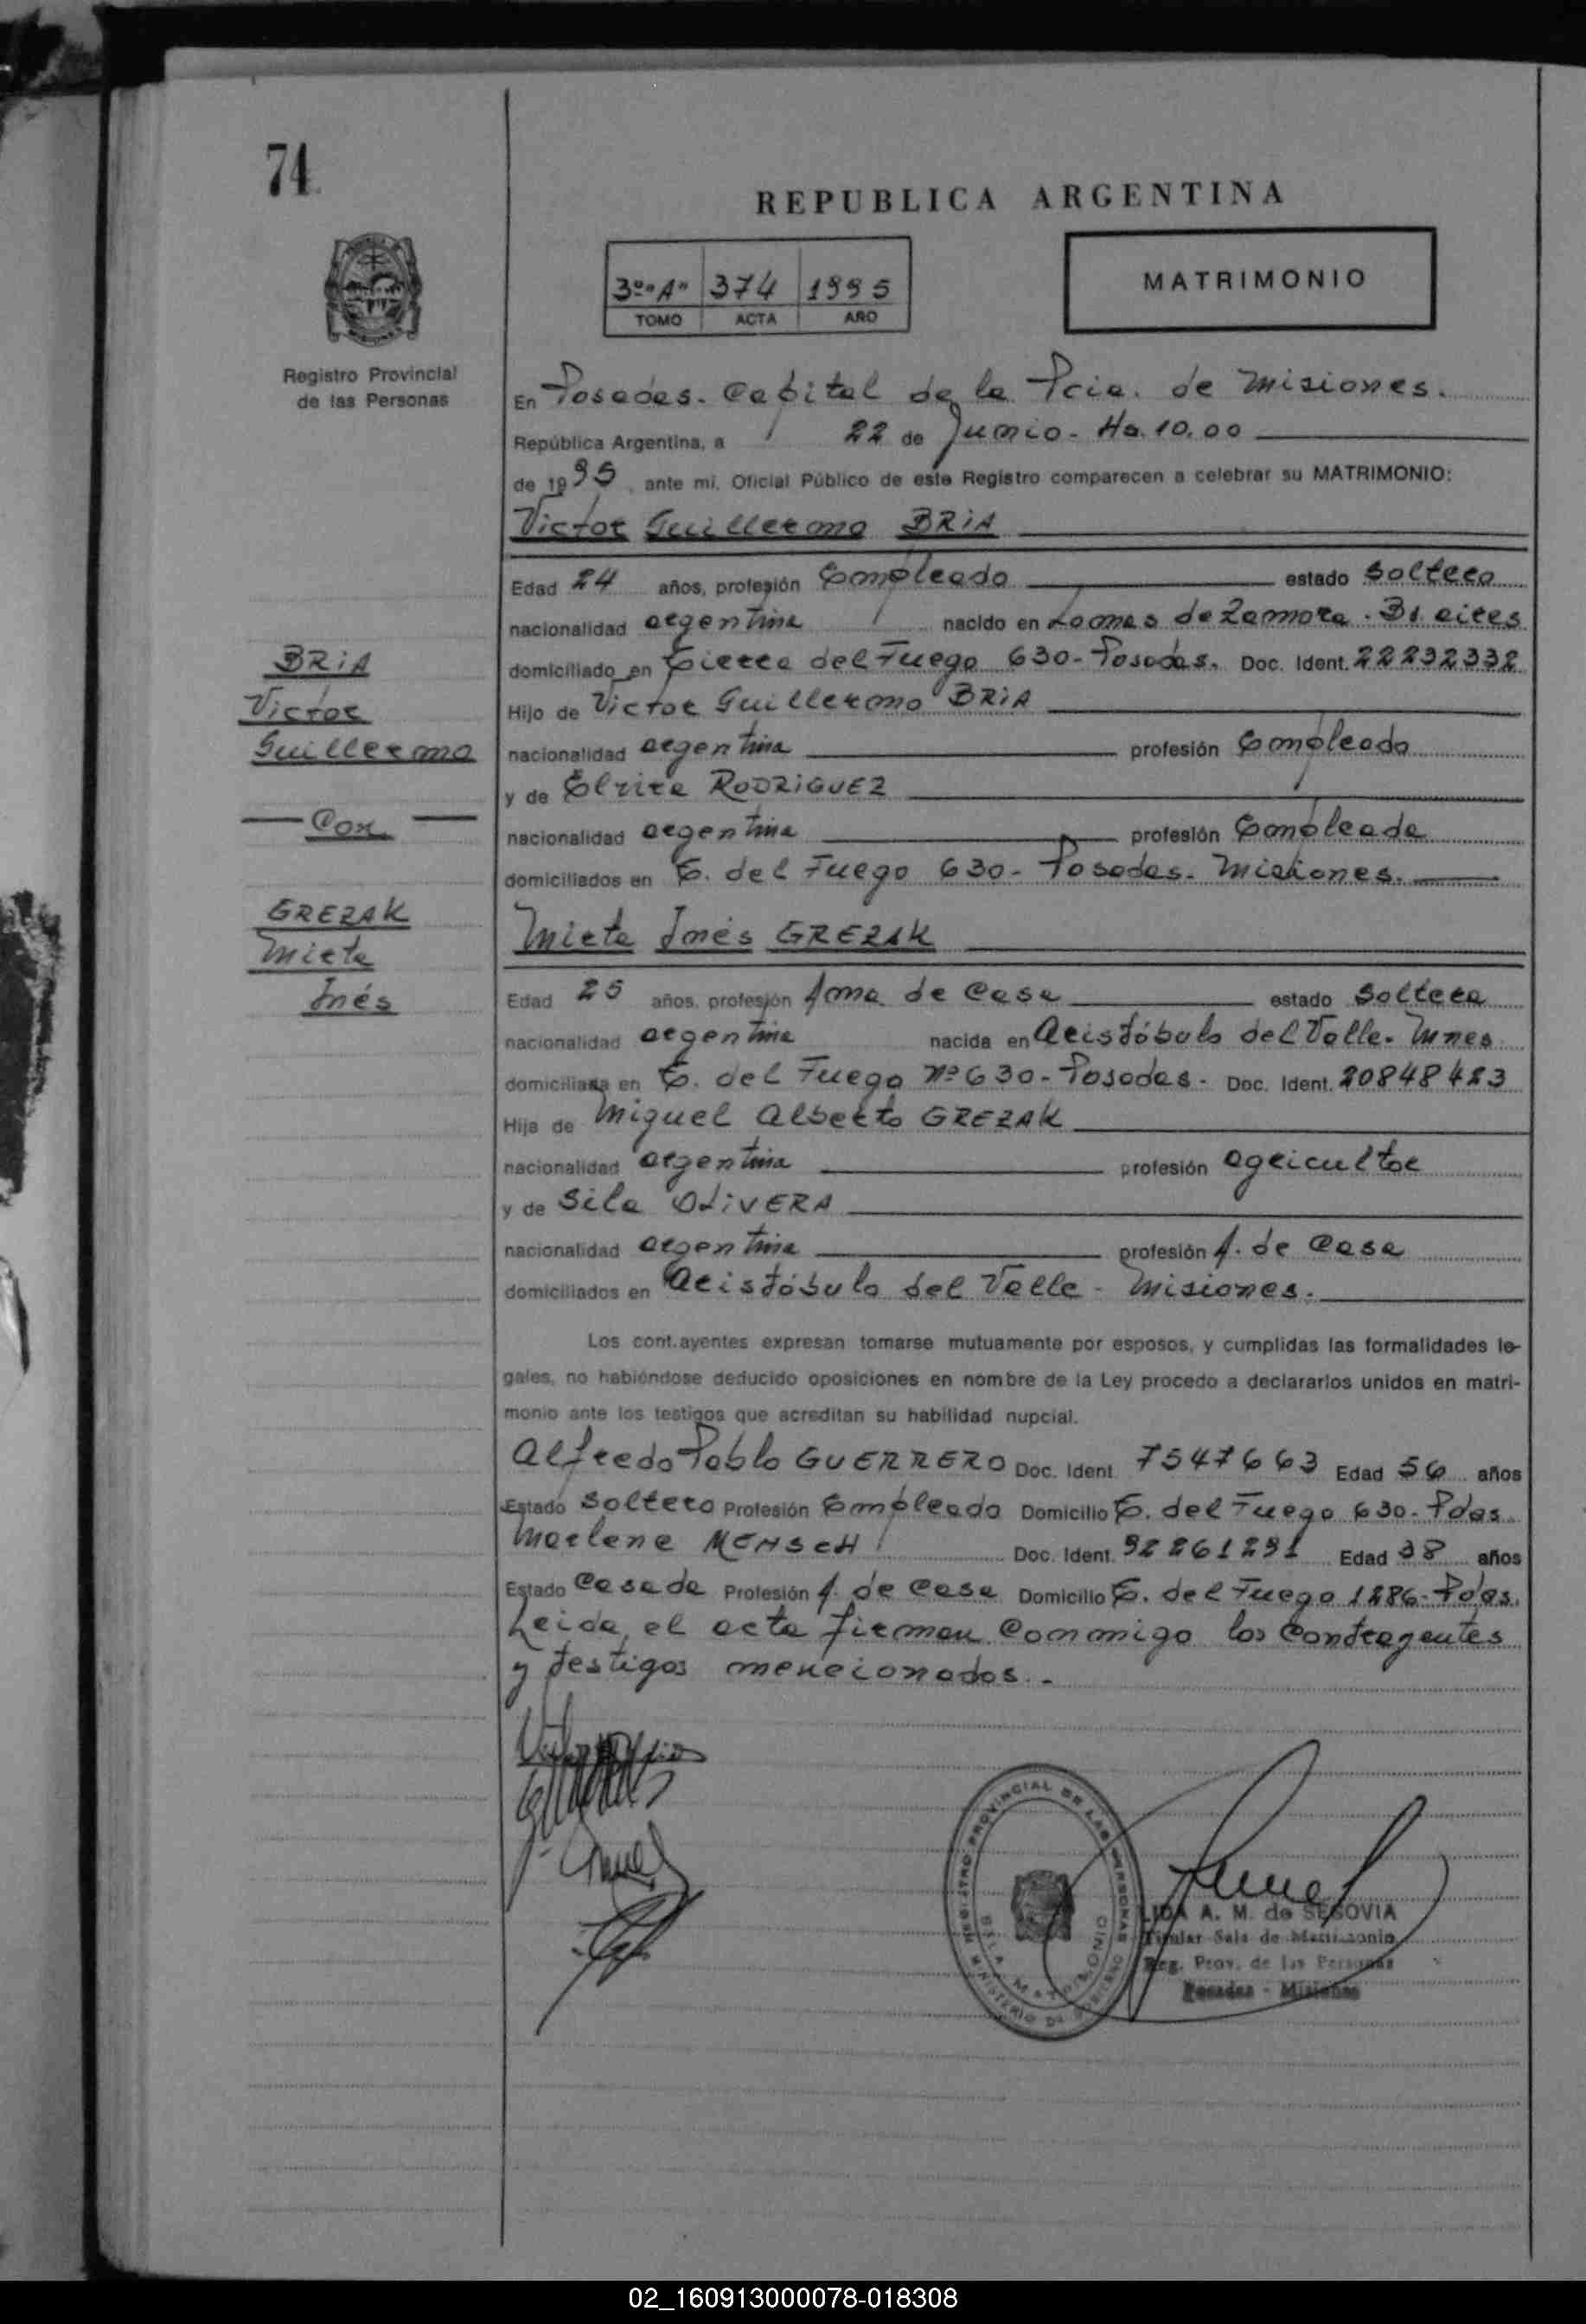 74
REPUBLICA ARGENTINA
3º "A" 374 1995
TOMO ACTA AÑO
MATRIMONIO
Registro Provincial
de las Personas
En Posadas. Capital de la Pcia. de Misiones.
República Argentina, a 22 de Junio - Hs. 10.00
de 1995, ante mi, Oficial Público de este Registro comparecen a celebrar su MATRIMONIO:
Victor Guillermo BRIA
Edad 24 años, profesión Empleado estado Soltero
nacionalidad argentina nacido en Lomas de Zamora. Bs. aires
domiciliado en Tierra del Fuego 630 - Posadas. Doc. Ident. 22232332
Hijo de Victor Guillermo BRIA
nacionalidad argentina profesión Empleado
y de Elvira RODRIGUEZ
nacionalidad argentina profesión Empleada
domiciliados en T. del Fuego 630 - Posadas - Misiones.
BRIA
Victor
Guillermo
Con
GREZAK
Mirta
Inés
Mirta Inés GREZAK
Edad 25 años, profesión Ama de Casa estado Soltera
nacionalidad argentina nacida en Aristóbulo del Valle - Mnes.
domiciliada en T. del Fuego Nº 630 - Posadas - Doc. Ident. 20848423
Hija de Miguel Alberto GREZAK
nacionalidad argentina profesión agricultor
y de Sila OLIVERA
nacionalidad argentina profesión A. de Casa
domiciliados en Aristóbulo del Valle - Misiones.
Los cont.ayentes expresan tomarse mutuamente por esposos, y cumplidas las formalidades le-
gales, no habiéndose deducido oposiciones en nombre de la Ley procedo a declararlos unidos en matri-
monio ante los testigos que acreditan su habilidad nupcial.
Alfredo Pablo GUERRERO Doc. Ident. 7547663 Edad 56 años
Estado Soltero Profesión Empleado Domicilio T. del Fuego 630 - Pdas.
Marlene MENSCH Doc. Ident. 92261291 Edad 38 años
Estado Casada Profesión A. de Casa Domicilio T. del Fuego 1286 - Pdas.
Leida el acta firman conmigo los Contrayentes
y testigos mencionados.-
REGISTRO PROVINCIAL DE LAS PERSONAS
MINISTERIO DE GOBIERNO
LIDA A. M. de SEGOVIA
Titular Sala de Matrimonio
Reg. Prov. de las Personas
Posadas - Misiones
02_160913000078-018308